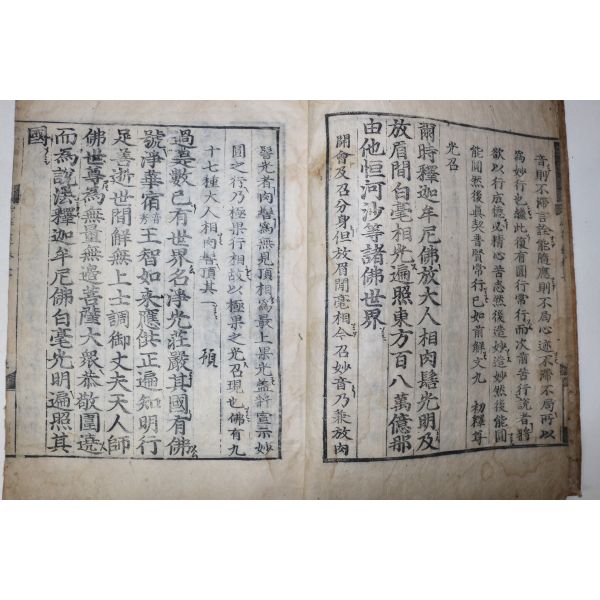 音則不滯言詮能隨應則不局心迹不滯不局所以
爲妙行也繼此復有圓行常行而次藥王苦行說者將
欲以行成德必精心苦志然後造妙造妙然後能圓
能圓然後眞契普賢常行已如前解文九 初釋尊
光召
爾時釋迦牟尼佛放大人相肉髻光明及
放眉間白毫相光遍照東方百八萬億那
由他恒河沙等諸佛世界
開會及召分身但放眉間毫相今召妙音乃兼放肉
髻光者肉髻爲無見頂相爲最上果光盖將宣示妙
圓之行乃極果行相故以極果之光召現也佛有九
十七種大人相肉髻頂其一 頂
過是數已有世界名淨光莊嚴其國有佛
號淨華宿王智如來應供正遍知明行
足善逝世間解無上士調御丈夫天人師
佛世尊爲無量無邊菩薩大衆恭敬圍遶
而爲說法釋迦牟尼佛白毫光明遍照其
國